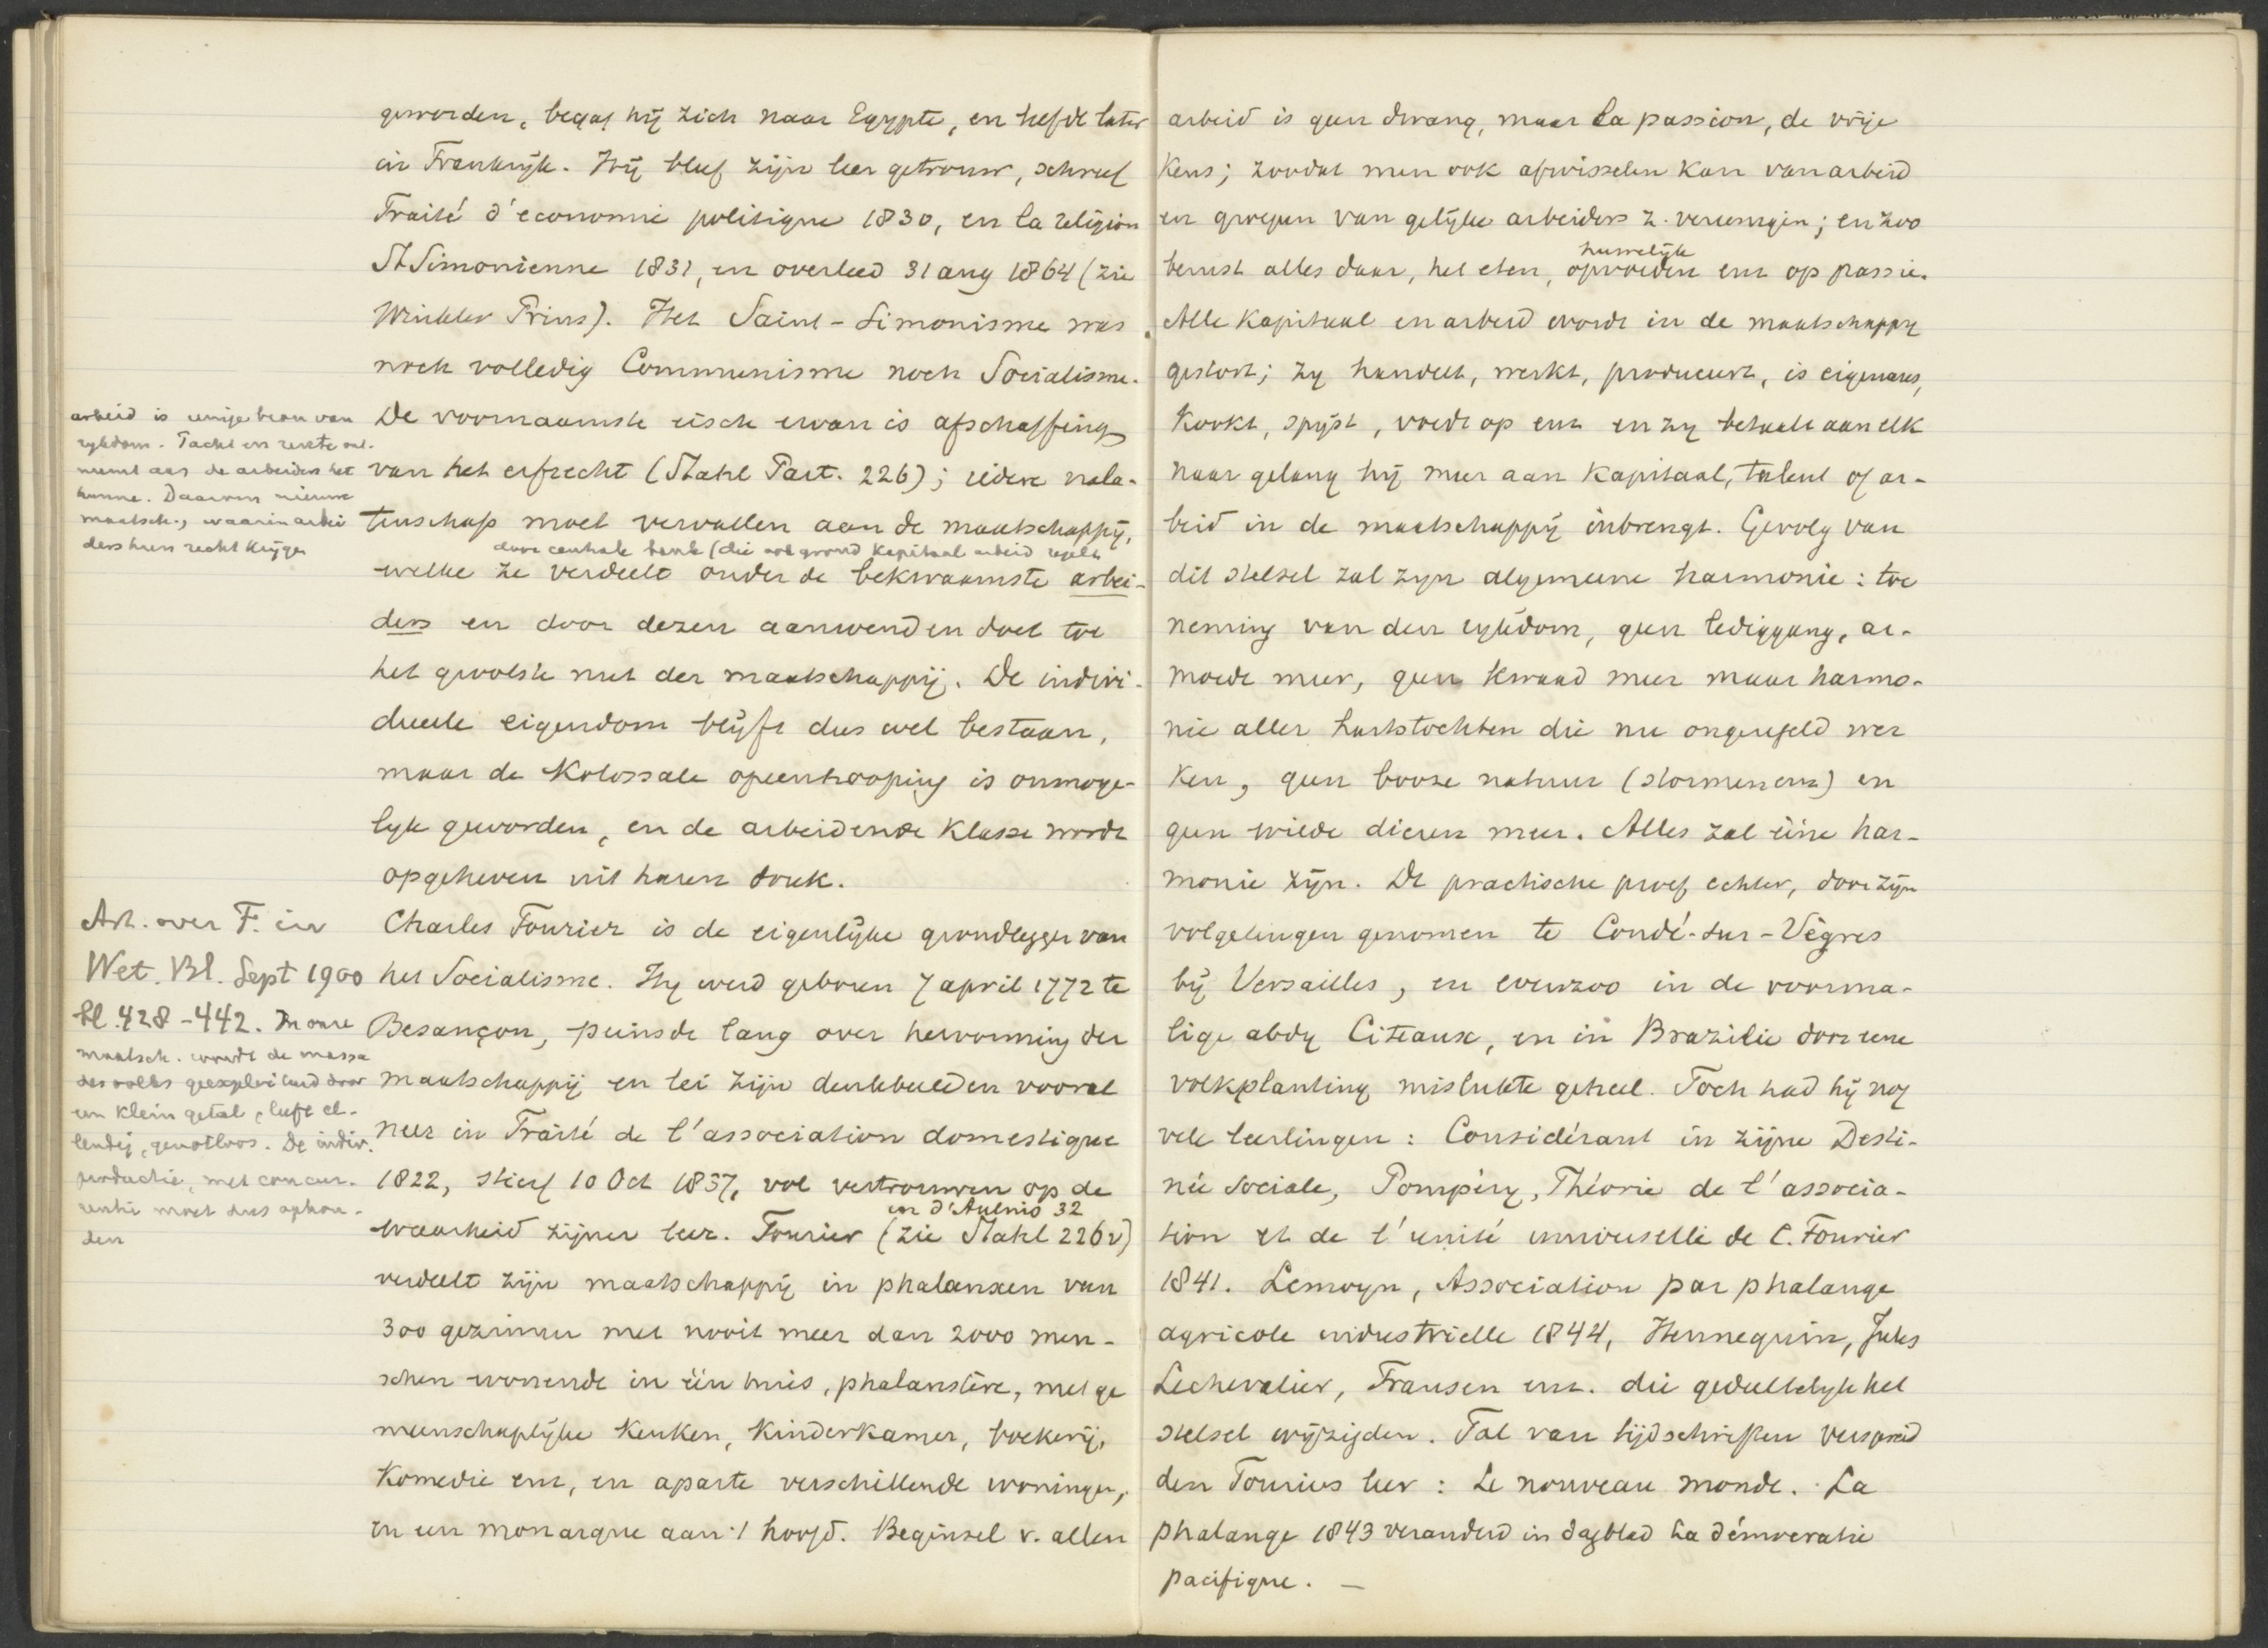 geworden, begaf hij zich naar Egypte, en leefde later
in Frankrijk. Hij bleef zijn leer getrouw, schreef
Traité d'economie politique 1830, en la religion
St Simonienne 1831, en overleed 31 aug 1864 (zie
Winkler Prins). Het Saint-Simonisme was
noch volledig Communisme noch Socialisme.
De voornaamste eisch ervan is afschaffing
van het erfrecht (Stahl Part. 226); iedere nala-
tenschap moet vervallen aan de maatschappij,
door centrale bank (die ook grond kapitaal arbeid regelt
welke ze verdeelt onder de bekwaamste arbei-
ders en door dezen aanwenden doet tot
het grootste nut der maatschappij. De indivi-
dueele eigendom blijft dus wel bestaan,
maar de kolossale opeenhooping is onmoge-
lyk geworden, en de arbeidende klasse wordt
opgeheven uit haren druk.
Charles Fourier is de eigenlijke grondlegger van
het Socialisme. Hy werd geboren 7 april 1772 te
Besançon, peinsde lang over hervorming der
maatschappij en lei zijn denkbeelden vooral
neer in Traité de l'association domestique
1822, stierf 10 Oct 1837, vol vertrouwen op de
en d'Aulnis 32
waarheid zijner leer. Fourier (zie Stahl 226v)
verdeelt zijn maatschappij in phalanxen van
300 gezinnen met nooit meer dan 2000 men-
schen wonende in één huis, phalanstère, met ge
meenschaplijke keuken, kinderkamer, boekerij,
Komedie enz, en aparte verschillende woningen,
en een monarque aan 't hoofd. Beginsel v. allen
arbeid is eenige bron van
rykdom. Pacht en rente ont-
neemt aan de arbeiders het
hunne. Daarom nieuwe
maatsch., waarin arbei
ders hun recht krijgen
Art. over F. in
Wet. Bl. Sept 1900
bl. 428-442. In onze
maatsch. wordt de massa
des volks geexploiteerd door
een klein getal, leeft el-
lendig, genotloos. De indiv.
productie, met concur-
rentie moet dus ophou-
den
arbeid is geen dwang, maar la passion, de vrije
keus; zoodat men ook afwisselen kan van arbeid
en groepen van gelijke arbeiders z. vereenigen; en zoo
huwelijk
berust alles daar, het eten, opvoeden enz op passie.
Alle kapitaal en arbeid wordt in de maatschappy
gestort; zy handelt, werkt, produceert, is eigenares,
kookt, spijst, voedt op enz en zy betaalt aan elk
naar gelang hij meer aan kapitaal, talent of ar-
beid in de maatschappij inbrengt. Gevolg van
dit stelsel zal zyn algemeene harmonie: toe
neming van den rykdom, geen lediggang, ar-
moede meer, geen kwaad meer maar harmo-
nie aller hartstochten die nu ongeregeld wer
ken, geen booze natuur (stormen enz) en
geen wilde dieren meer. Alles zal ééne har-
monie zijn. De practische proef echter, door zijn
volgelingen genomen te Condé-sur-Vègres
bij Versailles, en evenzoo in de voorma-
lige abdy Citeaux, en in Brazilie door eene
volkplanting mislukte geheel. Toch had hij nog
vele leerlingen: Considérant in zijne Desti-
née sociale, Pompéry, Théorie de l'associa-
tion et de l'unité universelle de C. Fourier
1841. Lemoyn, Association par phalange
agricole industrielle 1844, Hennequin, Jules
Lechevalier, Fransen enz. die gedeeltelyk het
stelsel wijzigden. Tal van tijdschriften verspreid
den Fouriers leer: Le nouveau monde. La
phalange 1843 veranderd in dagblad La démocratie
pacifique. —